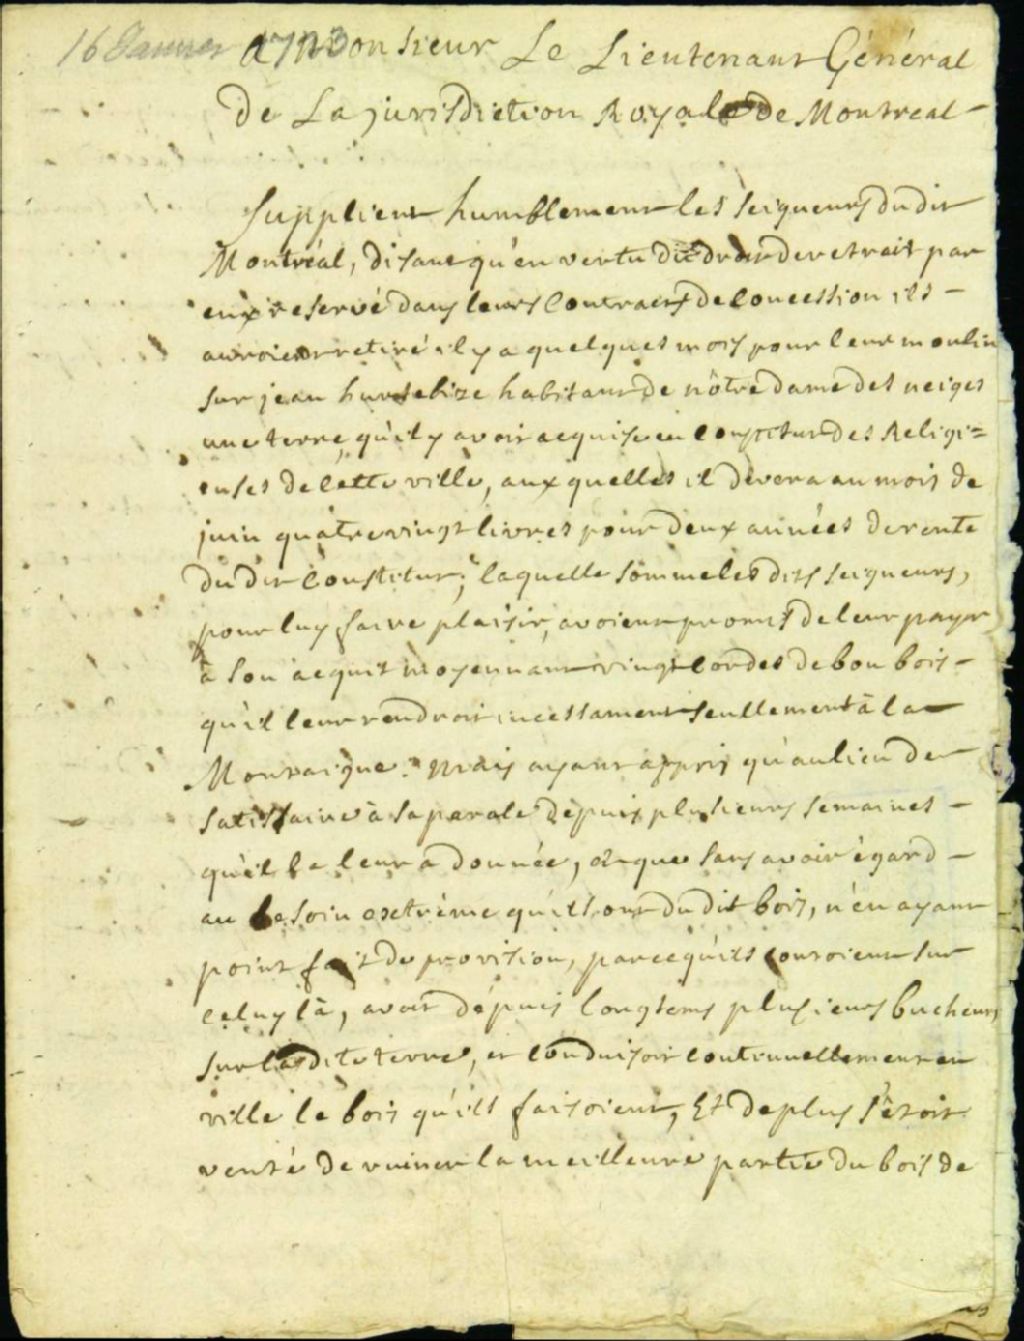 16 Janvier 1723
A Monsieur Le Lieutenant Général
De La jurisdiction Royale De Montreal
Supplient humblement les seigneurs du dit
Montréal, disant qu'en vertu du droit de retrait par
eux reservé dans leurs Contracts de Concession ils
auroient retiré il y a quelques mois pour leur moulin
sur jean hurtebize habitant de nôtre dame des neiges
une terre, qu'il y avoit acquise en constitut des Religi=
euses de cette ville, auxquelles il devera au mois de
juin quatre vingt livres pour deux années de rente
du dit Constitut; laquelle somme les dits seigneurs,
pour luy faire plaisir, avoient promis de leur payer
à son acquit moyennant vingt cordes de bon bois
qu'il leur rendroit incessament seullement à la
Montaigne. Mais ayant appris qu'au lieu de
satisfaire à sa parole depuis plusieurs semaines
qu'il la leur a donnée, & que sans avoir égard
au besoin extrème qu'ils ont du dit bois, n'en ayant
point fait de provision, parce qu'ils contoient sur
celuy là, avoit dépuis longtems plusieurs bucheurs
sur la dite terre, et conduisoit continuellement en
ville le bois qu'ils faisoient, Et de plus s'étoit
venté de ruiner la meilleure partie du bois de